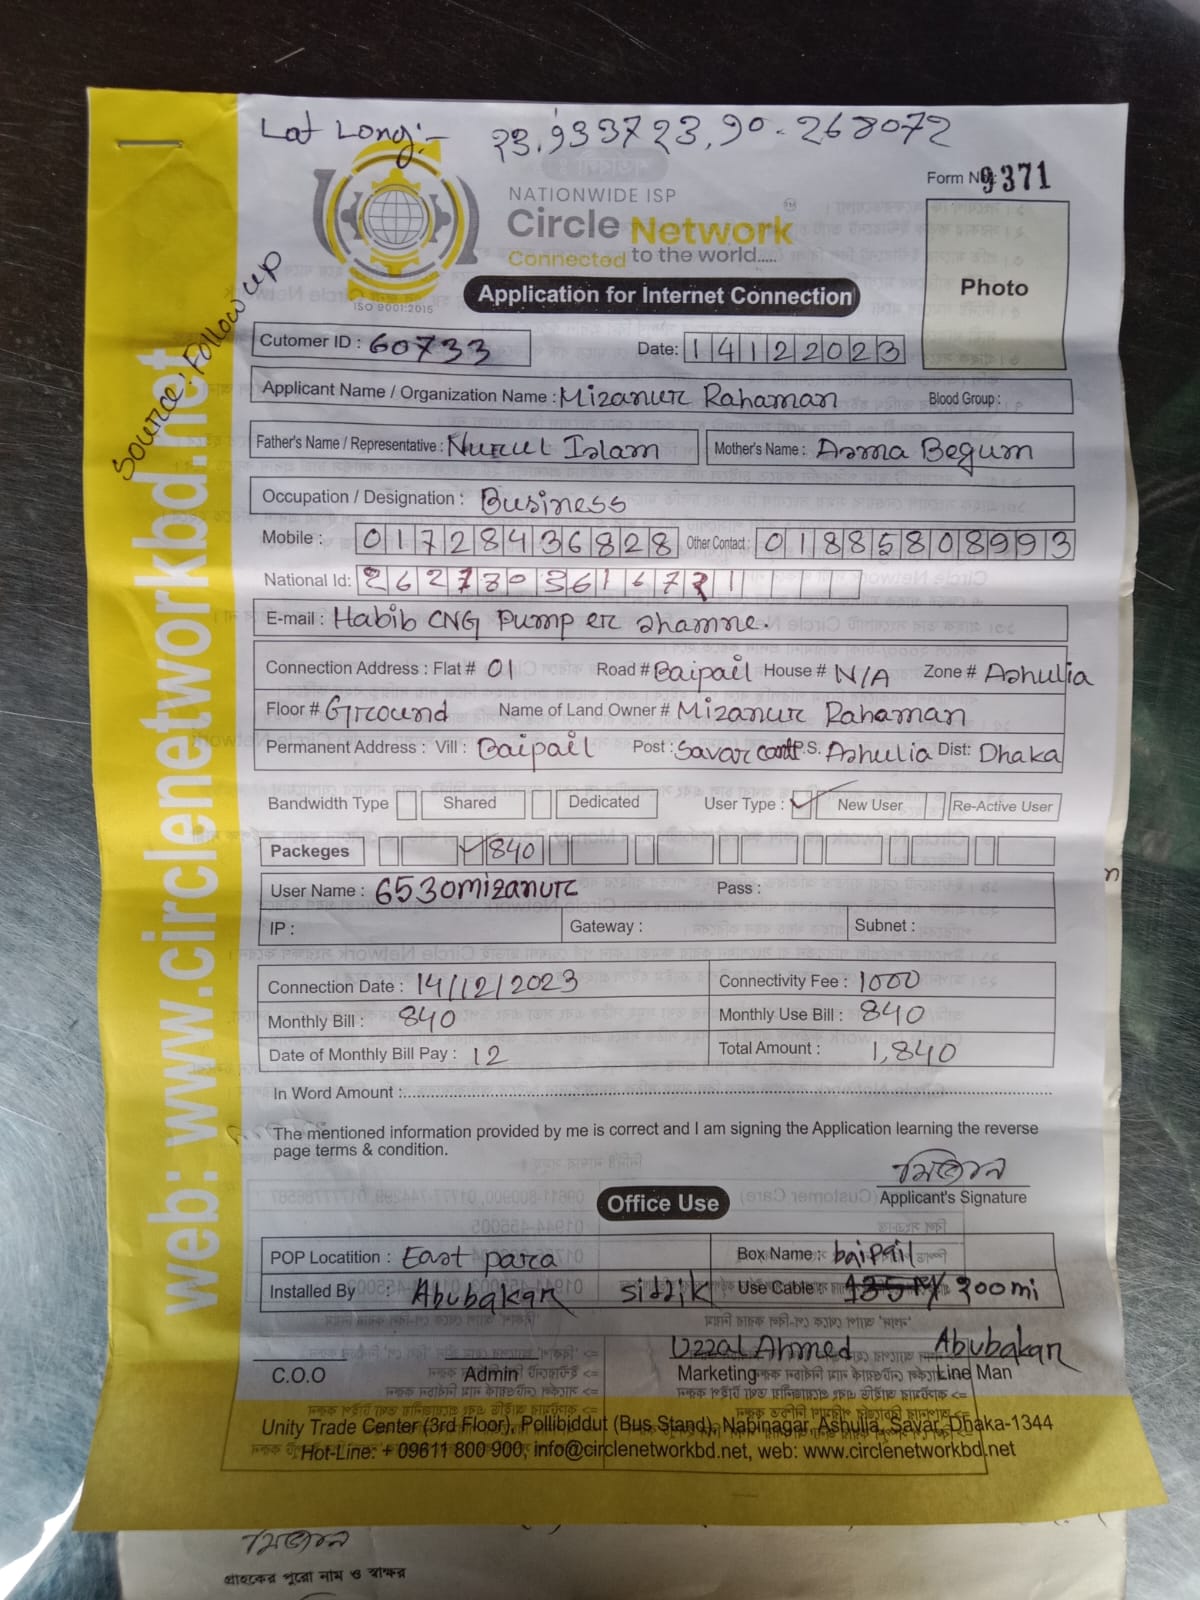 Lat Long:- 23.933723,90.268072
Form No 9371
NATIONWIDE ISP
Circle Network
Connected to the world.....
ISO 9001:2015
Application for Internet Connection
Photo
Source: Follow up
web: www.circlenetworkbd.net
Cutomer ID : 60733
Date: 14122023
Applicant Name / Organization Name : Mizanur Rahaman Blood Group :
Father's Name / Representative : Nurul Islam Mother's Name : Asma Begum
Occupation / Designation : Business
Mobile : 01728436828 Other Contact : 01885808993
National Id:
E-mail : Habib CNG Pump er shamne.
Connection Address : Flat # 01 Road # Baipail House # N/A Zone # Ashulia
Floor # Ground Name of Land Owner # Mizanur Rahaman
Permanent Address : Vill : Baipail Post : Savar cantt P.S. Ashulia Dist: Dhaka
Bandwidth Type Shared Dedicated User Type : New User Re-Active User
Packeges 840
User Name : 6530mizanur Pass :
IP : Gateway : Subnet :
Connection Date : 14/12/2023 Connectivity Fee : 1000
Monthly Bill : 840 Monthly Use Bill : 840
Date of Monthly Bill Pay : 12 Total Amount : 1,840
In Word Amount :
The mentioned information provided by me is correct and I am signing the Application learning the reverse
page terms & condition.
মিজান
Applicant's Signature
Office Use
POP Locatition : East para Box Name : baipail
Installed By : Abubakar siddik Use Cable : 200mi
Uzzal Ahmed Abubakar
C.O.O Admin Marketing Line Man
Unity Trade Center (3rd Floor), Pollibiddut (Bus Stand), Nabinagar, Ashulia, Savar, Dhaka-1344
Hot-Line: + 09611 800 900, info@circlenetworkbd.net, web: www.circlenetworkbd.net
মিজান
গ্রাহকের পুরো নাম ও স্বাক্ষর